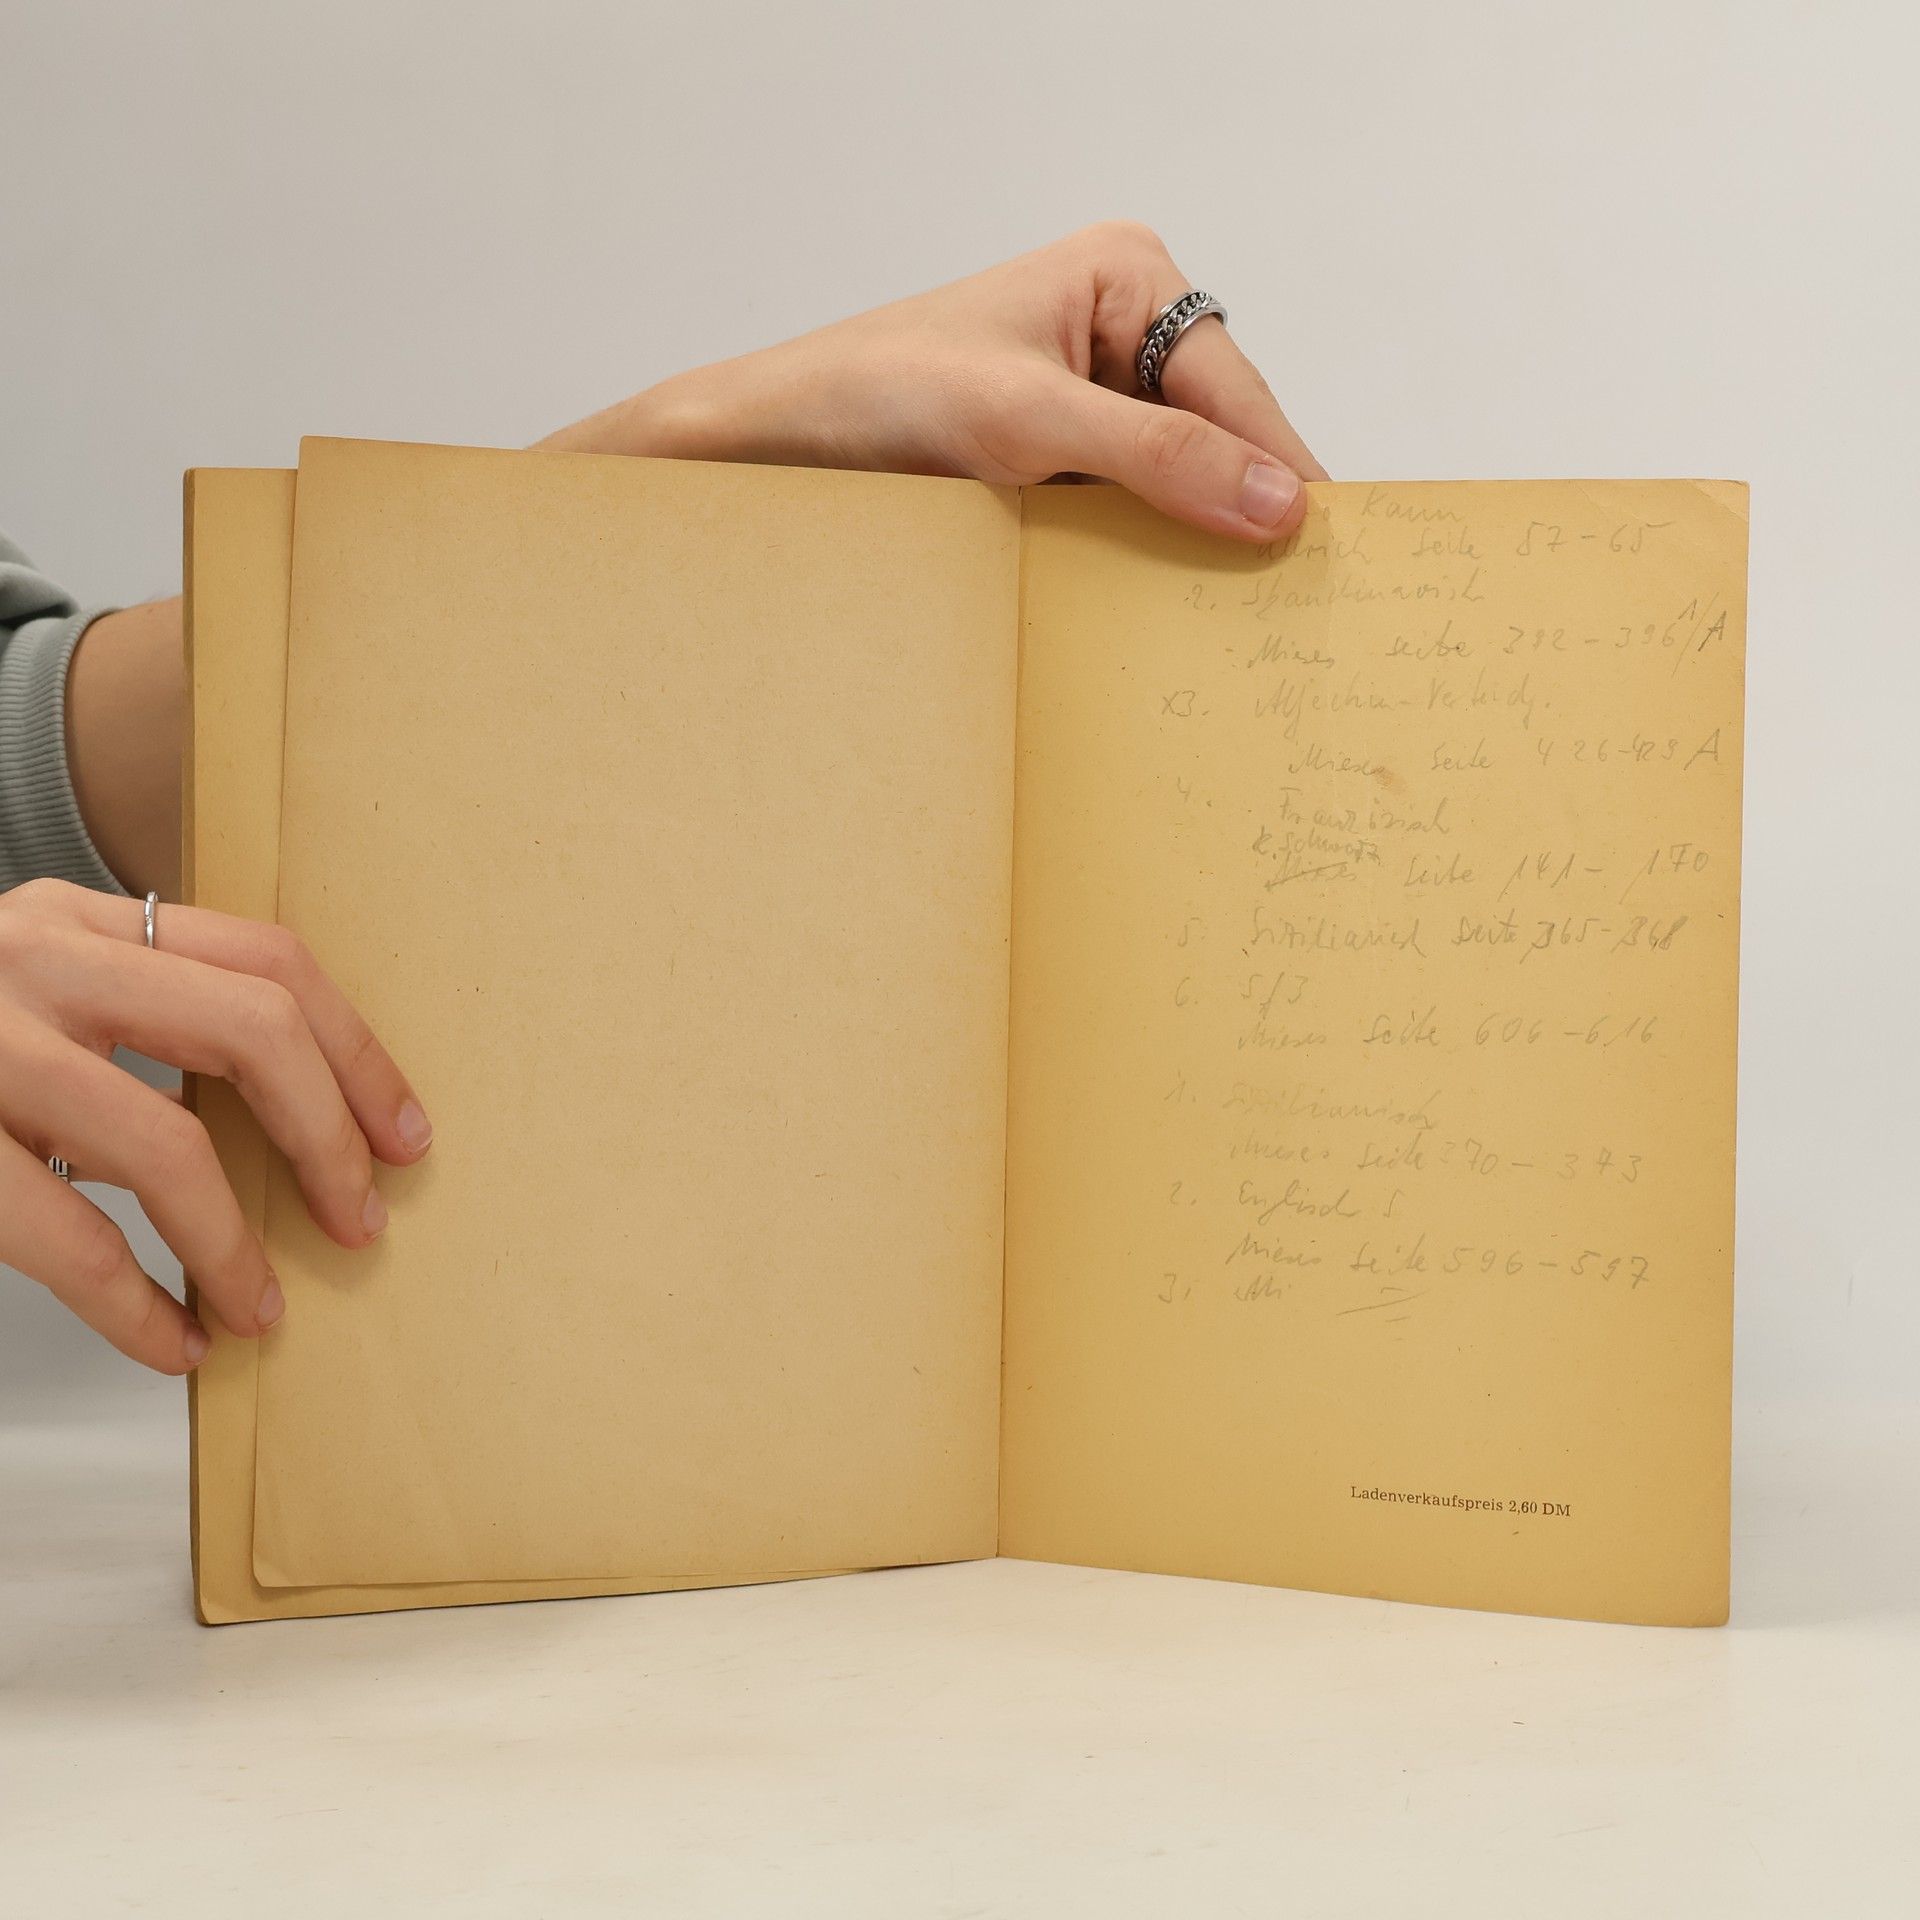 Kann
Seite 57-65
2. Skandinavisch
- Mieses Seite 392-396 1/A
x3.
Mieses Seite 426-429 A
4. Französisch
K. Schwarz
Mieses Seite 141-170
5. Sizilianisch Seite 365-368
6. Sf3
Mieses Seite 606-616
1. Sizilianisch
Mieses Seite 370-373
2. Englisch S
Mieses Seite 596-597
3.
Ladenverkaufspreis 2,60 DM